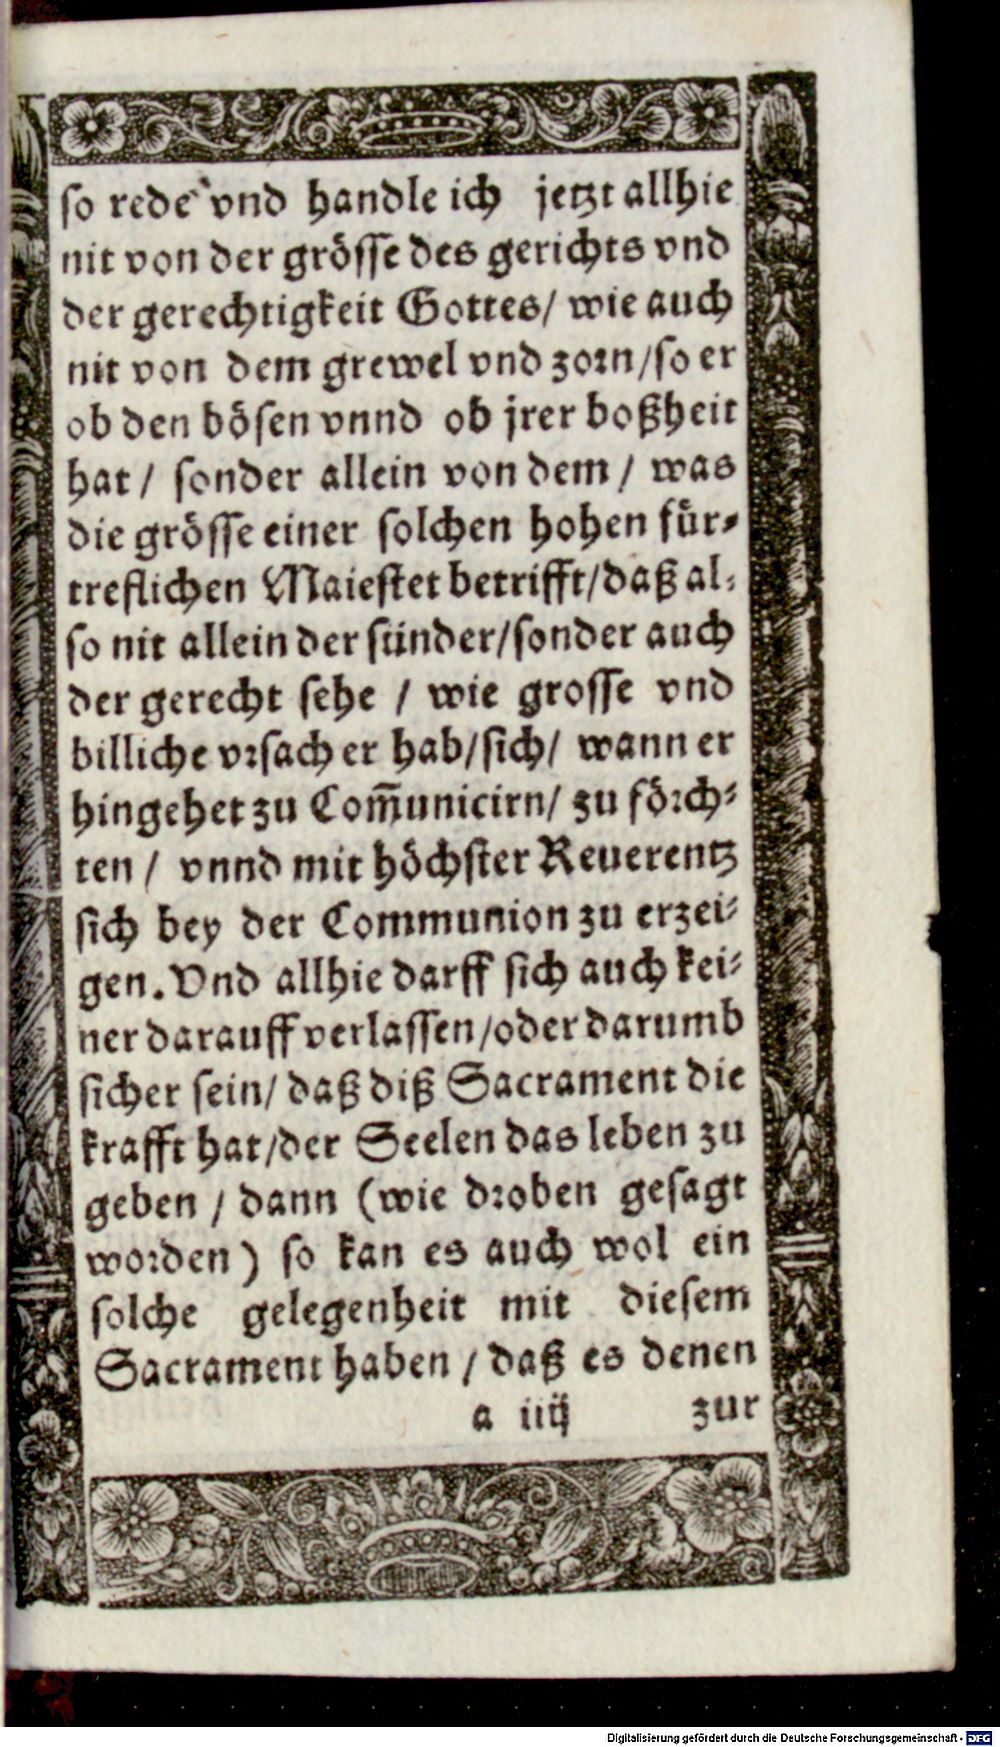 so rede vnd handle ich jetzt allhie
nit von der grösse des gerichts vnd
der gerechtigkeit Gottes/ wie auch
nit von dem grewel vnd zorn/so er
ob den bösen vnnd ob jrer boßheit
hat/ sonder allein von dem/ was
die grösse einer solchen hohen für⸗
treflichen Maiestet betrifft/daß al⸗
so nit allein der sünder/sonder auch
der gerecht sehe / wie grosse vnd
billiche vrsach er hab/sich/ wann er
hingehet zu Com̃unicirn/ zu förch⸗
ten / vnnd mit höchster Reuerentz
sich bey der Communion zu erzei⸗
gen. Vnd allhie darff sich auch kei⸗
ner darauff verlassen/oder darumb
sicher sein/ daß diß Sacrament die
krafft hat/der Seelen das leben zu
geben / dann (wie droben gesagt
worden) so kan es auch wol ein
solche gelegenheit mit diesem
Sacrament haben / daß es denen
a iiij zur
Digitalisierung gefördert durch die Deutsche Forschungsgemeinschaft - DFG